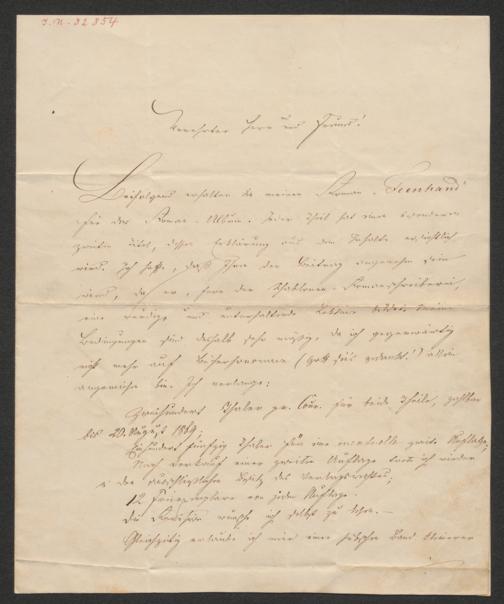 I.N. 82854
Verehrter Herr und Freund!
Beifolgend erhalten Sie meinen Roman „Feenhand"
für das Roman-Album. Jeder Theil hat einen besonderen
zweiten Titel, dessen Erklärung aus dem Inhalte ersichtlich
wird. Ich hoffe, daß Ihnen der Beitrag angenehm sein
wird, da er, fern der Schablonen-Romanschreiberei,
eine und unterhaltende Lektüre bildet. Meine
Bedingungen sind deshalb sehr mäßig, da ich gegenwärtig
nicht mehr auf (Gott sei's gedankt!) allein
angewiesen bin. Ich verlange:
Zweihundert Thaler pr. Cour. für beide Theile, zahlbar
bis 20. August 1869;
Einhundert fünfzig Thaler für eine eventuelle zweite Auflage;
Nach Verkauf einer zweiten Auflage trete ich wieder
in den Besitz des Verlagsrechtes;
12 Freiexemplare von jeder Auflage.
Die wünsche ich selbst zu lesen. —
Gleichzeitig erlaube ich mir einen Band